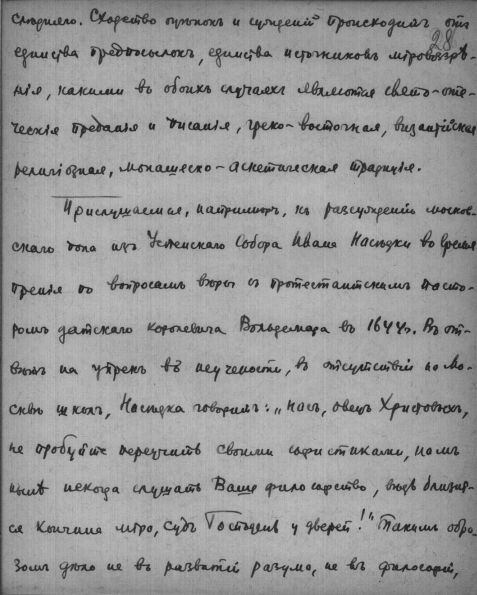 следияло. Сходство оцѣнокъ и сужденій происходитъ отъ
28
единства предпосылокъ, единства источниковъ міровоззрѣ-
нія, какими въ обоихъ случаяхъ являются свято-оте-
ческія преданія и писанія, греко-восточная, византійская
религіозная, монашеско-аскетическая традиція.
Прислушаемся, напримѣръ, къ разсужденію москов-
скаго попа изъ Успенскаго Собора Ивана Насѣдки во время
пренія по вопросамъ вѣры съ протестантскимъ пасто-
ромъ датскаго королевича Вольдемара въ 1644г. Въ от-
вѣтъ на упрекъ въ неучености, въ отсутствіи по Мо-
сквѣ школъ, Насѣдка говоритъ: „насъ, овецъ Христовыхъ,
не пробуйте переучить своими софистиками, намъ
нынѣ некогда слушать Ваше философство, вѣдь близит-
ся кончина міра, судъ Господень у дверей!" Такимъ обра-
зомъ дѣло не въ развитіи разума, не въ философіи,